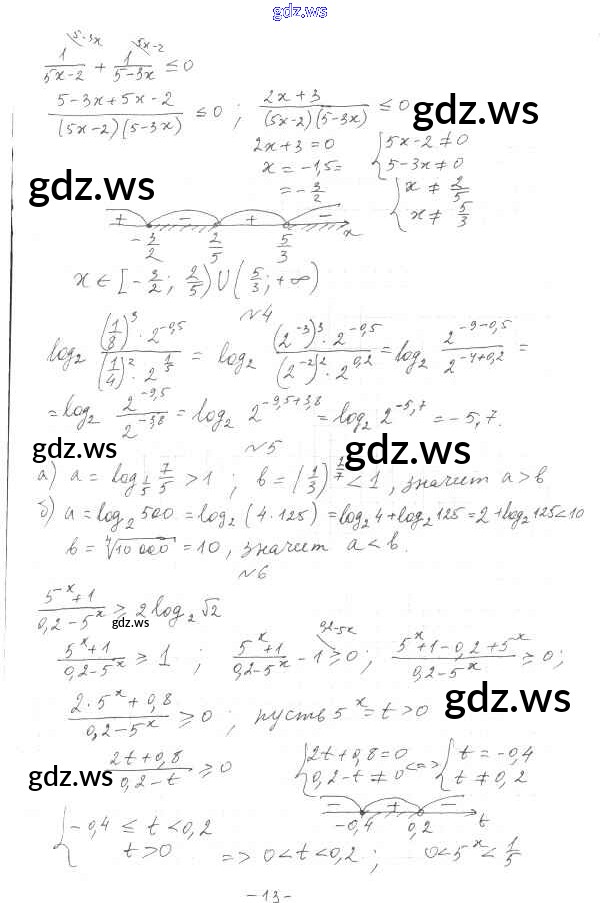 gdz.ws
1/(5x-2) \5-3x + 1/(5-3x) \5x-2 ≤ 0
(5-3x+5x-2)/((5x-2)(5-3x)) ≤ 0 ; (2x+3)/((5x-2)(5-3x)) ≤ 0
gdz.ws
2x+3=0 { 5x-2≠0
x=-1,5= 5-3x≠0
gdz.ws
=-3/2 { x≠2/5
x≠5/3
+ - + -
-3/2 2/5 5/3 x
x∈[-3/2; 2/5)∪(5/3;+∞)
№4
log₂ ((1/8)³·2^(-0,5))/((1/4)²·2^(1/5)) = log₂ ((2^(-3))³·2^(-0,5))/((2^(-2))²·2^(0,2)) = log₂ 2^(-9-0,5)/2^(-4+0,2) =
= log₂ 2^(-9,5)/2^(-3,8) = log₂ 2^(-9,5+3,8) = log₂ 2^(-5,7) = -5,7.
№5
gdz.ws gdz.ws
а) a=log_(1/5) 7/5 > 1 ; b=(1/3)^(1/7) < 1, значит a>b
б) a=log₂500=log₂(4·125)=log₂4+log₂125=2+log₂125<10
b=⁴√10000=10, значит a<b.
№6
(5^x+1)/(0,2-5^x) ≥ 2log₂√2
gdz.ws
(5^x+1)/(0,2-5^x) ≥ 1 ; (5^x+1)/(0,2-5^x) - 1 \0,2-5^x ≥ 0 ; (5^x+1-0,2+5^x)/(0,2-5^x) ≥ 0;
gdz.ws
(2·5^x+0,8)/(0,2-5^x) ≥ 0 ; пусть 5^x=t>0
(2t+0,8)/(0,2-t) ≥ 0 { 2t+0,8=0 <=> { t=-0,4
0,2-t≠0 t≠0,2
gdz.ws gdz.ws
- + -
-0,4 0,2 t
{ -0,4≤t<0,2
t>0 => 0<t<0,2 ; 0<5^x<1/5
-13-